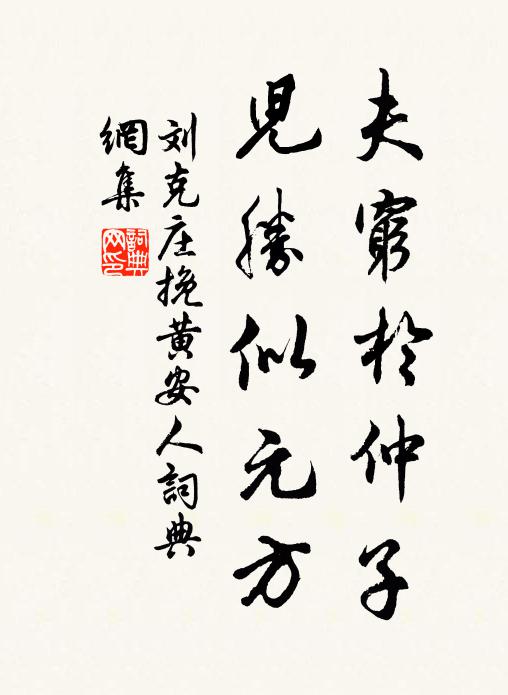 夫穷於仲子
児勝似元方
刘克庄挽黄安人詞典
網集
詞典
网印